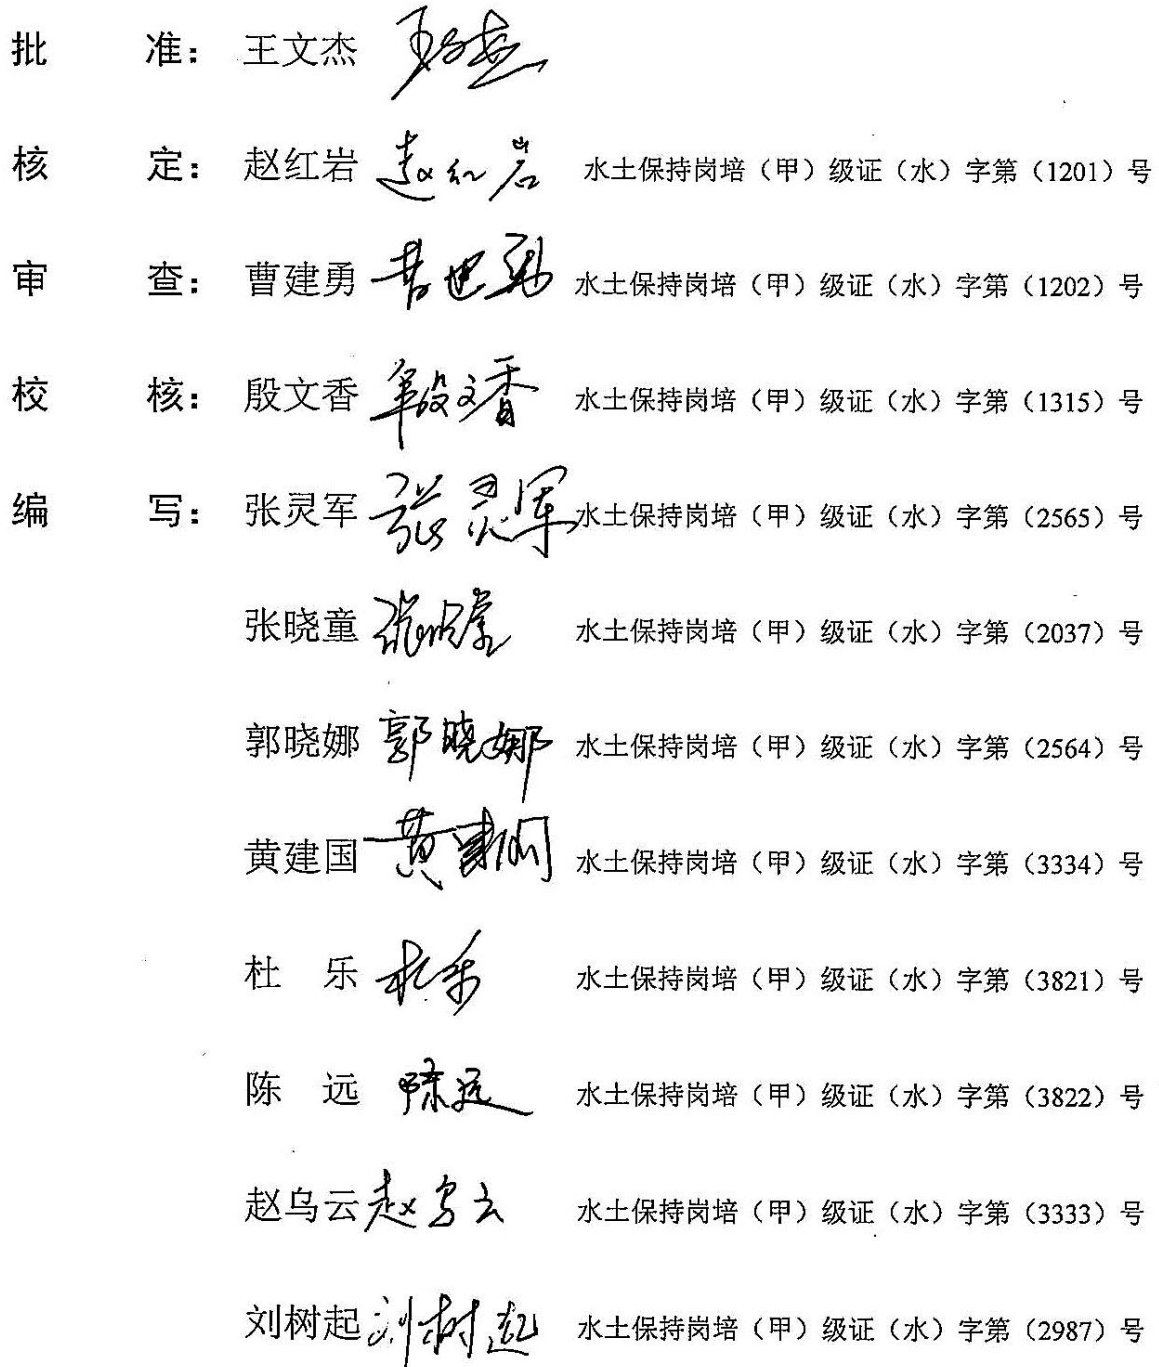 批 准： 王文杰 王文杰
核 定： 赵红岩 赵红岩 水土保持岗培（甲）级证（水）字第（1201）号
审 查： 曹建勇 曹建勇 水土保持岗培（甲）级证（水）字第（1202）号
校 核： 殷文香 殷文香 水土保持岗培（甲）级证（水）字第（1315）号
编 写： 张灵军 张灵军 水土保持岗培（甲）级证（水）字第（2565）号
张晓童 张晓童 水土保持岗培（甲）级证（水）字第（2037）号
郭晓娜 郭晓娜 水土保持岗培（甲）级证（水）字第（2564）号
黄建国 黄建国 水土保持岗培（甲）级证（水）字第（3334）号
杜 乐 杜乐 水土保持岗培（甲）级证（水）字第（3821）号
陈 远 陈远 水土保持岗培（甲）级证（水）字第（3822）号
赵乌云 赵乌云 水土保持岗培（甲）级证（水）字第（3333）号
刘树起 刘树起 水土保持岗培（甲）级证（水）字第（2987）号